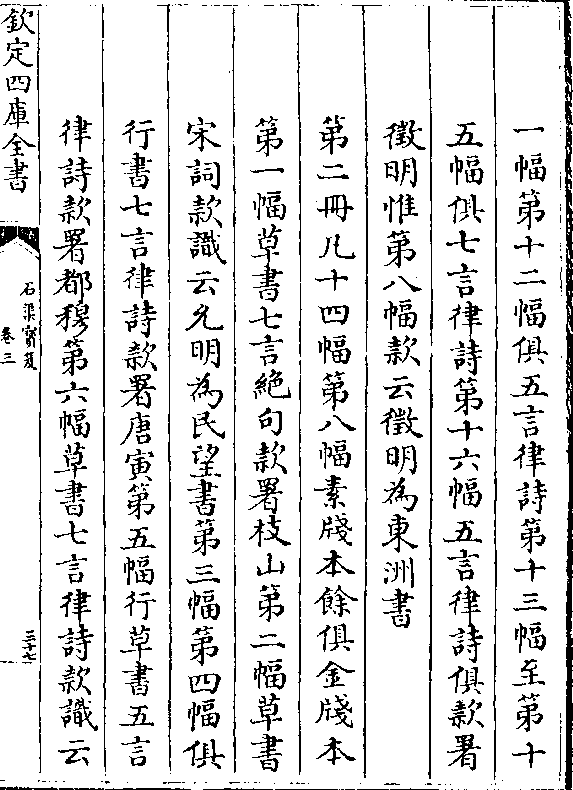 一幅第十二幅俱五言律詩第十三幅至第十
五幅俱七言律詩第十六幅五言律詩俱款署
徵明惟第八幅款云徵明為東洲書
第二冊凡十四幅第八幅素牋本餘俱金牋本
第一幅草書七言絶句款署枝山第二幅草書
宋詞款識云允明為民望書第三幅第四幅俱
行書七言律詩款署唐寅第五幅行草書五言
律詩款署都穆第六幅草書七言律詩款識云
欽定四庫全書
石渠寳笈
卷三
三十七